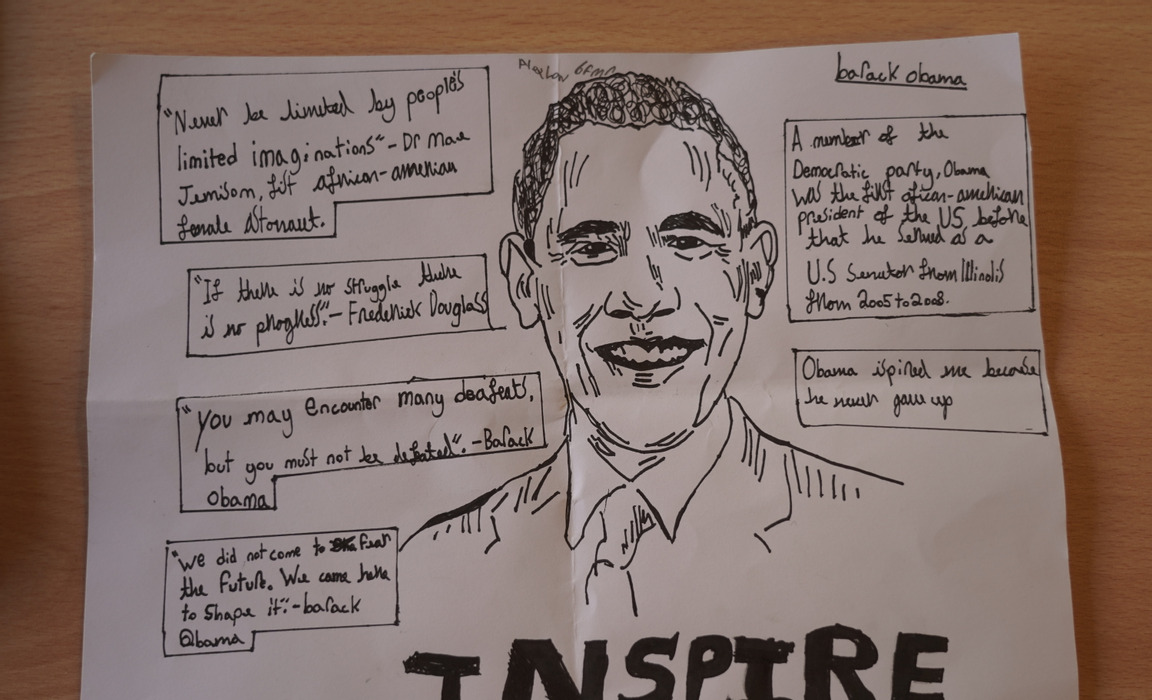 barack obama
"Never be limited by people's
limited imaginations" - Dr Mae
Jemison, fist african-amerian
female Astonaut.
"If there is no struggle there
is no progress". - Frederick Douglass
"you may encounter many deafeats,
but you must not be defeated". - Barack
Obama
"we did not come to fear
the future. We came here
to shape it". - barack
Obama
A member of the
Democratic party, Obama
was the first african-american
president of the US, before
that he served as a
U.S Senator from Illinois
from 2005 to 2008.
Obama ispired me because
he never gave up
INSPIRE